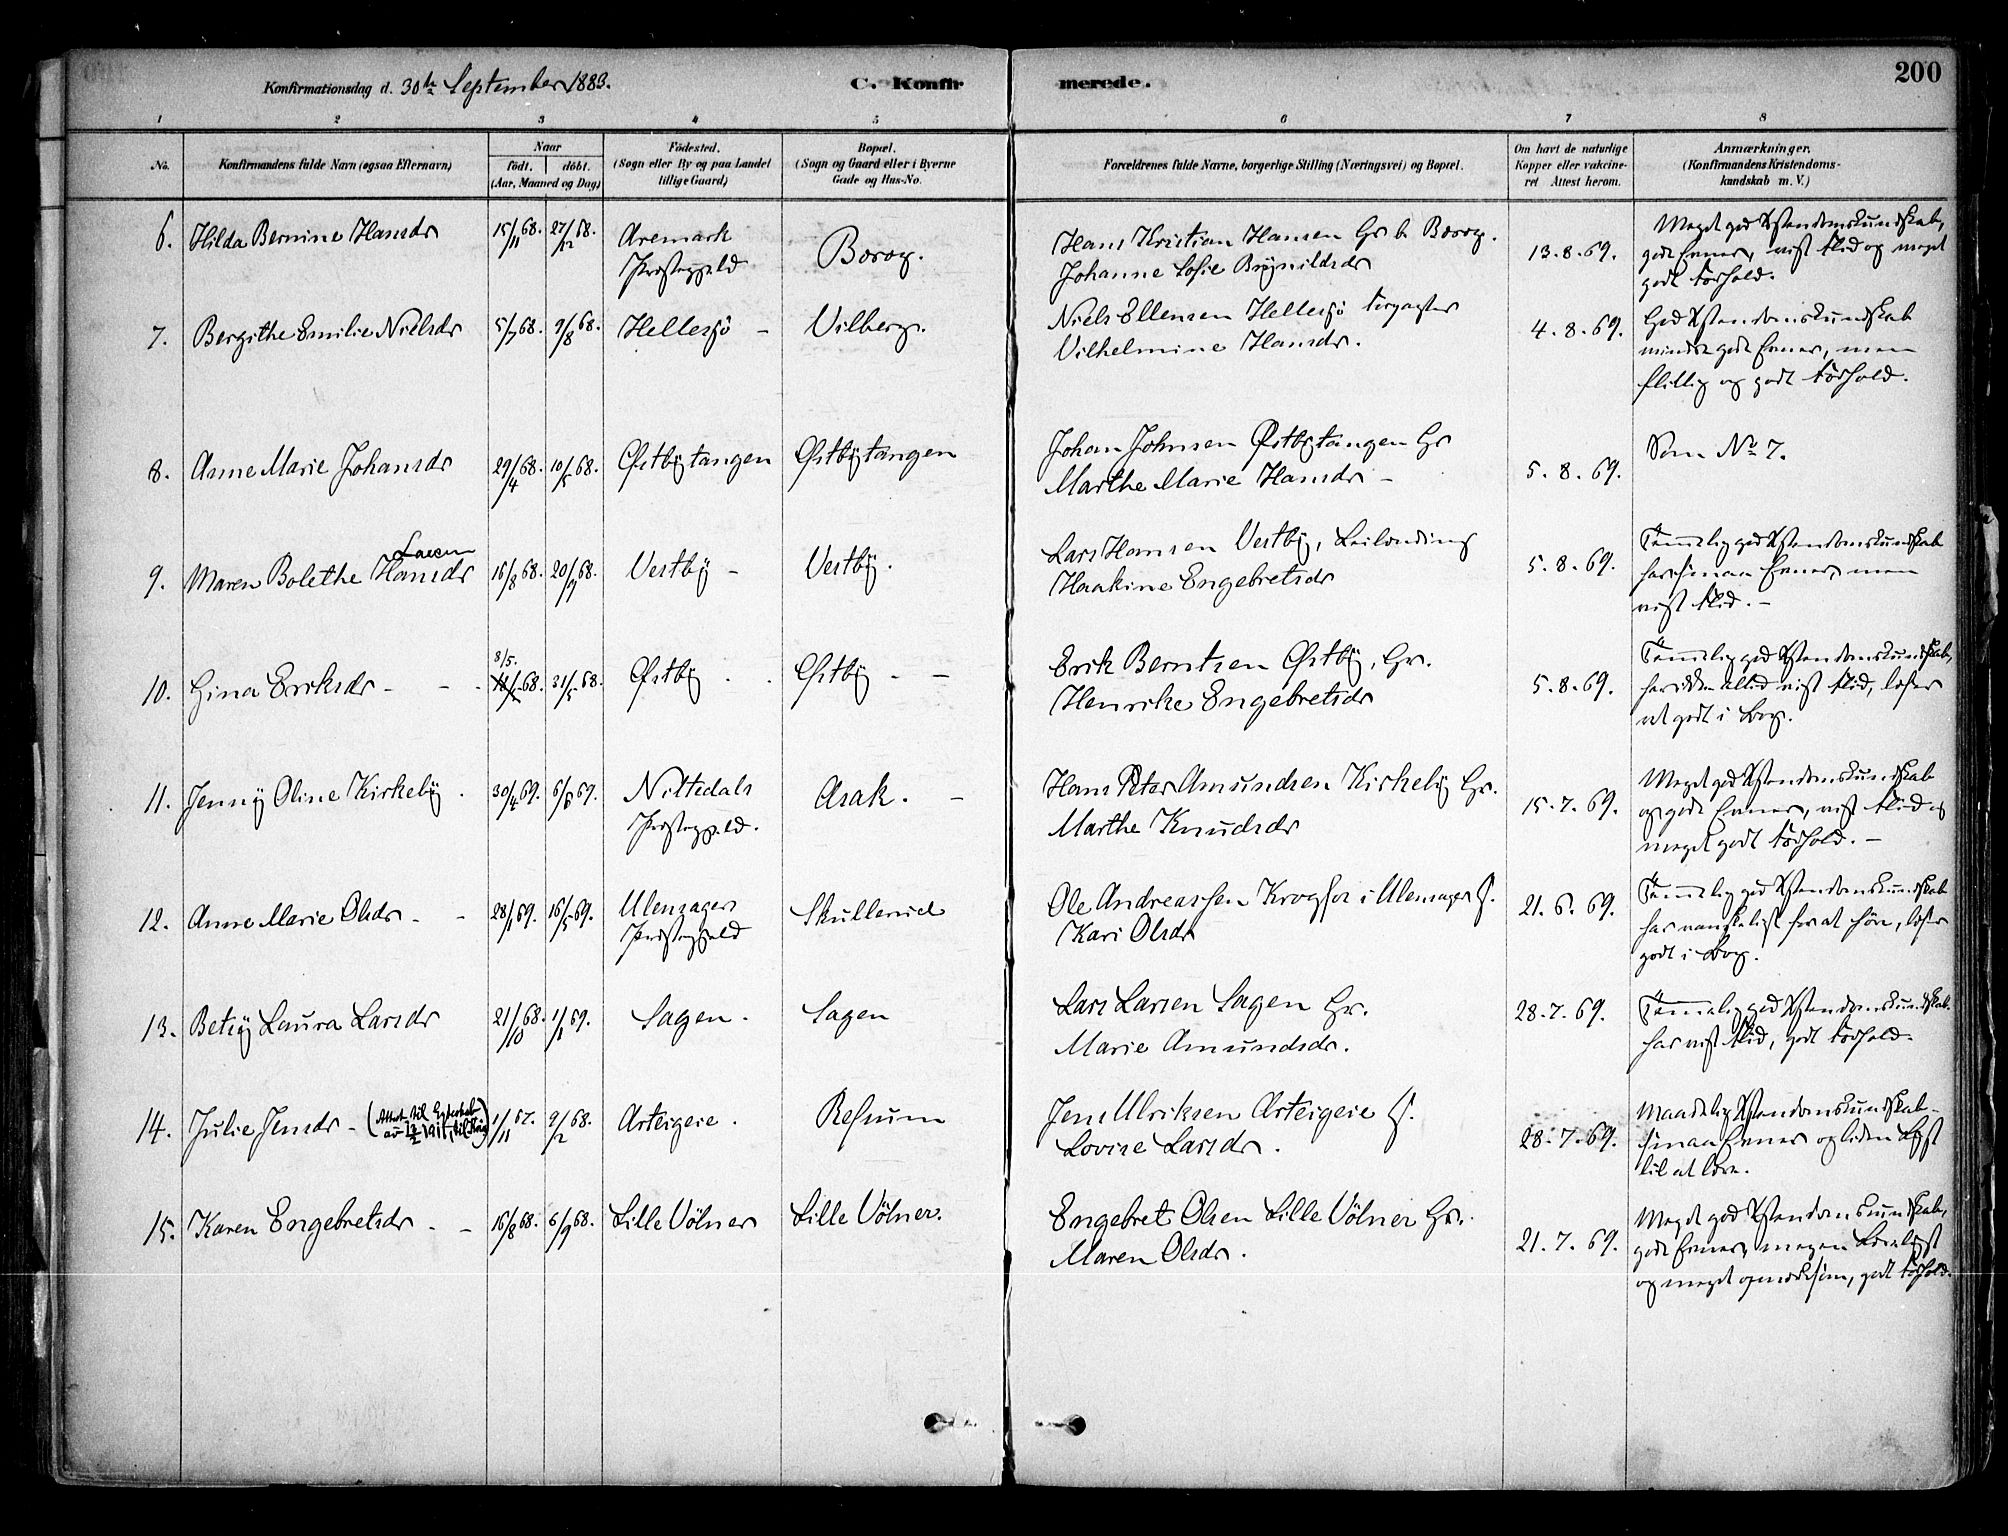 Konfirmationsdag d. 30te September 1883.
C. Konfir
merede.
200
1 2 3 4 5 6 7 8
No.
Konfirmandens fulde Navn (ogsaa Efternavn)
Naar
födt. döbt.
(Aar, Maaned og Dag)
Födested.
(Sogn eller By og paa Landet
tillige Gaard)
Bopæl.
(Sogn og Gaard eller i Byerne
Gade og Hus-No.
Forældrenes fulde Navne, borgerlige Stilling (Næringsvei) og Bopæl.
Om havt de naturlige
Kopper eller vakcine-
ret Attest herom.
Anmærkninger.
(Konfirmandens Kristendoms-
kundskab m. V.)
6. Hilda Bernine Hansdr 15/11 68. 27/12 68. Aremark
Præstegjeld
Borog.
Hans Kristian Hansen Gr b. Borog.
Johanne Sofie Brynildsdr
13.8.69.
Meget god Xstendomskundskab,
gode Evner, vist Flid og meget
godt Forhold.
7. Bergithe Emilie Nielsdr 5/7 68. 9/8 68. Hellesjö - Vilberg.
Niels Ellensen Hellesjö Forpagter
Vilhelmine Hansdr.
4.8.69.
God Xstendomskundskab
mindre gode Evner, men
flittig og godt Forhold.
8. Anne Marie Johansdr 29/4 68. 10/5 68. Østbytangen Østbytangen
Johan Johnsen Østbytangen Gr
Marthe Marie Hansdr -
5.8.69.
Som No 7.
9. Maren Bolethe Hansdr Larsen 16/8 68. 20/9 68. Vestby - Vestby.
Lars Hansen Vestby, Leilending
Haakine Engebretsdr
5.8.69.
Temmelig god Xstendomskundskab
har smaa Evner, men
vist Flid. -
10. Gina Eriksdr - - - 8/5. 68. 31/5 68. Østby . . Østby - -
Erik Berntsen Østby, Gr.
Henrike Engebretsdr
5.8.69.
Temmelig god Xstendomskundskab,
har ikke altid vist Flid, læser
godt i Bog.
11. Jenny Oline Kirkeby . 30/4 69. 6/6 69. Nittedals
Præstegjeld.
Asak. -
Hans Peter Amundsen Kirkeby Gr.
Marthe Knudsdr
15.7.69.
Meget god Xstendomskundskab
og gode Evner, vist Flid og
meget godt Forhold. -
12. Anne Marie Olsdr - - 28/1 69. 16/5 69. Ulensagers
Præstegjeld
Skullerud
Ole Andreassen Krogfos i Ulensager
Kari Olsdr
21.6.69.
Temmelig god Xstendomskundskab
har vanskeligt for at höre, læser
godt i Bog.
13. Betsy Laura Larsdr 21/10 68. 1/1 69. Sagen. Sagen
Lars Larsen Sagen Gr.
Marie Amundsdr.
28.7.69.
Temmelig god Xstendomskundskab.
har vist Flid, godt Forhold.
14. Julie Jensdr - (Attest til Egteskab
1/11 67. 9/2 68. Asteigeie. Refsum
Jens Ulriksen Asteigeie
Lovise Larsdr.
28.7.69.
Maadelig Xstendomskundskab -
smaa Evner og liden Lyst
til at lære.
15. Karen Engebretsdr - - 16/8 68. 6/9 68. Lille Völner Lille Völner.
Engebret Olsen Lille Völner Gr.
Maren Olsdr.
21.7.69.
Meget god Xstendomskundskab,
gode Evner, megen Lærelyst
og meget opmærksom, godt Forhold.